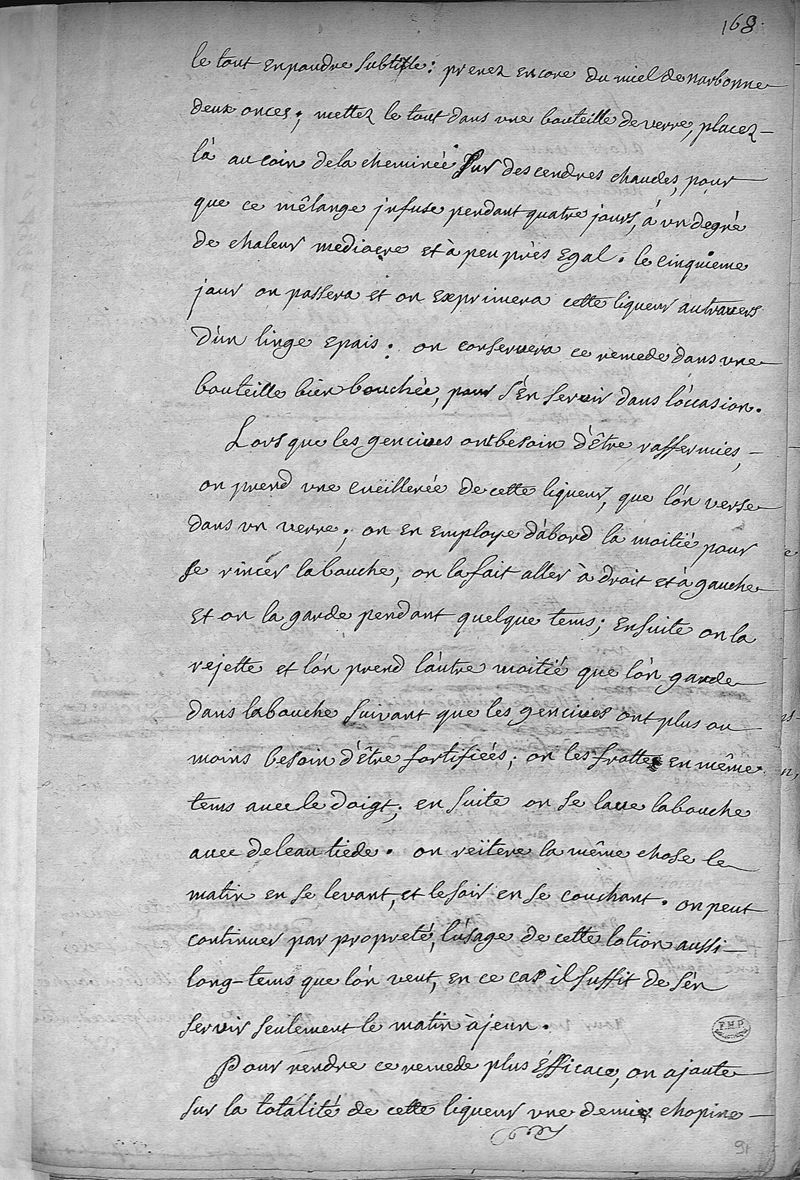 168.
le tout en poudre subtille: prenez encore du miel de narbonne
deux onces; mettez le tout dans une bouteille de verre, placez-
là au coin de la cheminée sur des cendres chaudes, pour
que ce mêlange jnfuse pendant quatre jours, à vn degré
de chaleur mediocre et à peu près egal. le cinquieme
jour on passera et on exprimera cette liqueur autravers
d'un linge epais: on conservera ce remede dans vne
bouteille bien bouchée, pour s'én servir dans l'óccasion.
Lorsque les gencives ont besoin d'être raffermies,
on prend vne cuëillerée de cette liqueur, que l'ón verse
dans vn verre; on en employe d'abord la moitié pour
se rincer la bouche, on la fait aller à droit et à gauche
et on la garde pendant quelque tems; ensuite on la
rejette et l'ón prend l'áutre moitié que l'ón garde
dans la bouche suivant que les gencives ont plus ou
moins besoin d'être fortifiées; on les frotte en même
tems avec le doigt; en suite on se lave la bouche
avec de leau tiède. on reïtere la même chose le
matin en se levant, et le soir en se couchant. on peut
continuer par propreté, l'úsage de cette lotion aussi
long-tems que l'ón veut, en ce cas il suffit de s'én
servir seulement le matin à jeun.
Pour rendre ce remede plus éfficace, on ajoute
sur la totálité de cette liqueur vne demie chopine
91